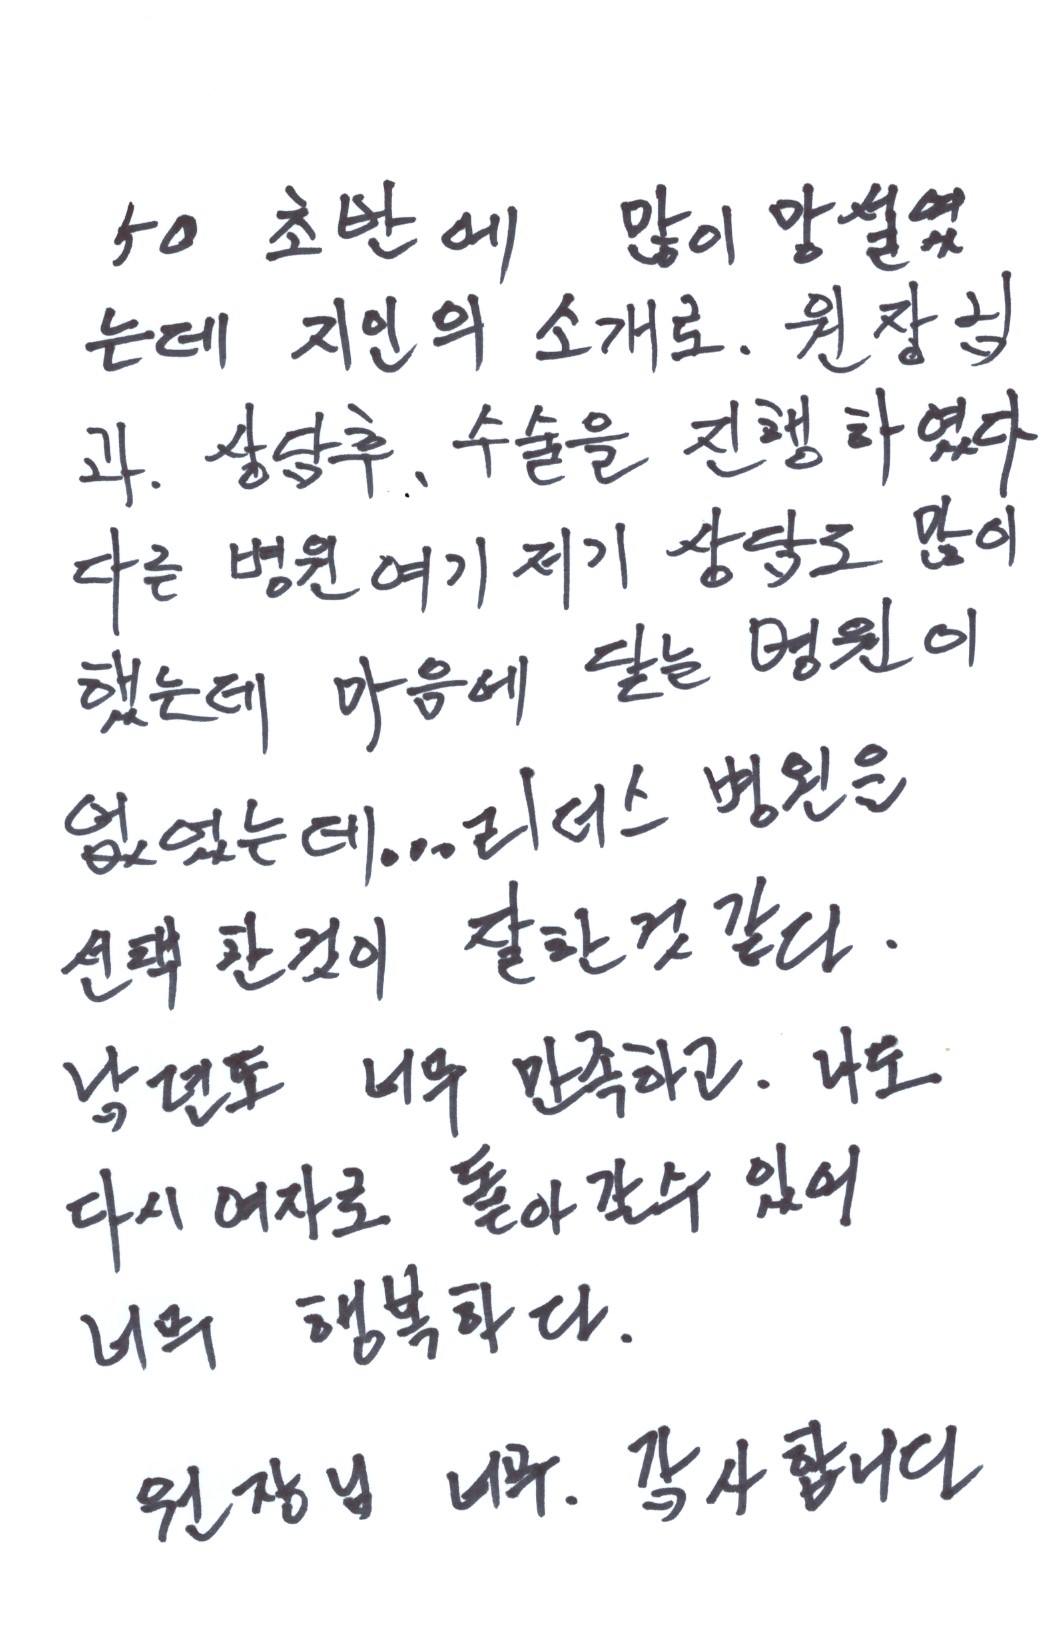 50 초반에 많이 망설였
는데 지인의 소개로. 원장님
과. 상담후, 수술을 진행하였다
다른 병원 여기 저기 상담도 많이
했는데 마음에 닿는 병원이
없었는데...리더스 병원을
선택 한것이 잘한것 같다.
남편도 너무 만족하고. 나도
다시 여자로 돌아갈수 있어
너무 행복하다.
원장님 너무. 감사합니다